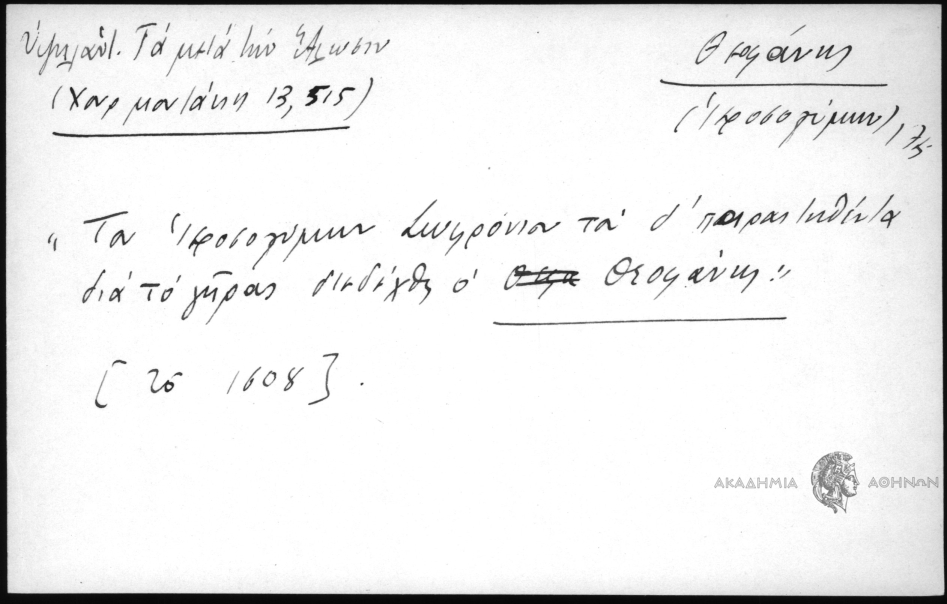 Ὑψηλάντ. Τά μετά τήν Ἅλωσιν
(Χουρμουζιάκη 13, 515)
Θεοφάνης
(Ἱεροσολύμων) 175
"Τον Ἱεροσολύμων Σωφρόνιον τά δ' παραιτηθέντα
διά τό γῆρας διεδέχθη ὁ Θεοφάνης"
[τό 1608].
ΑΚΑΔΗΜΙΑ ΑΘΗΝΩΝ